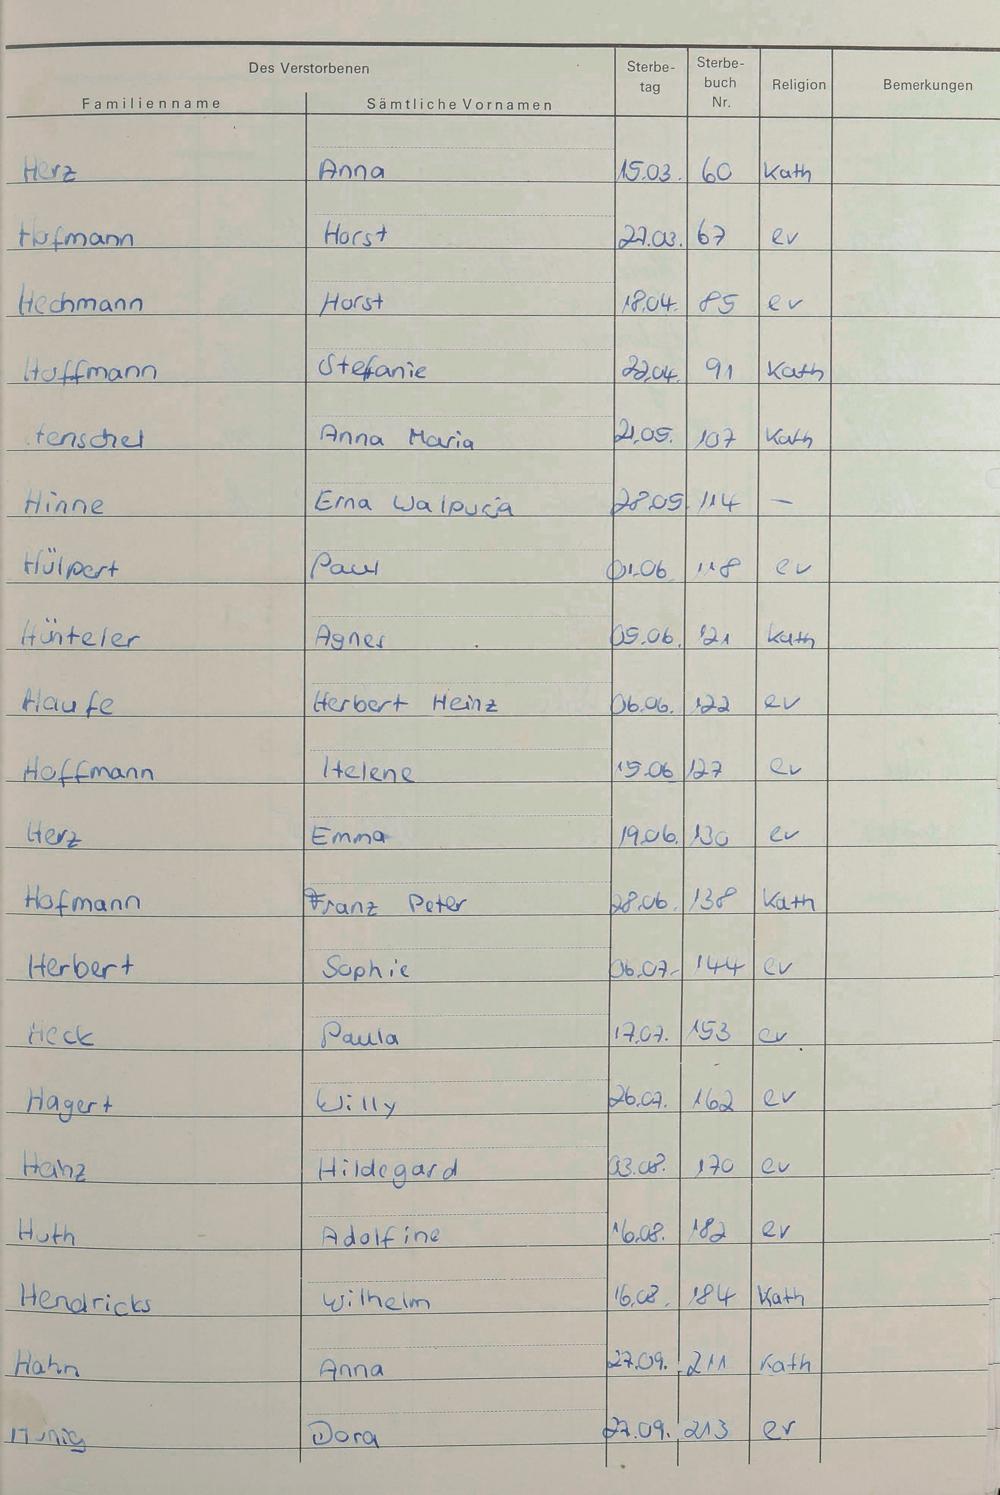 Des Verstorbenen
Familienname Sämtliche Vornamen Sterbe-tag Sterbe-buch Nr. Religion Bemerkungen
Herz Anna 15.03. 60 Kath
Hofmann Horst 27.03. 67 ev
Hechmann Horst 18.04. 85 ev
Hoffmann Stefanie 22.04. 91 Kath
Henschel Anna Maria 21.05. 107 Kath
Hinne Erna 28.05 114 —
Hülpert Paul 01.06 118 ev
Hünteler Agnes 05.06. 121 Kath
Haufe Herbert Heinz 06.06. 122 ev
Hoffmann Helene 15.06 127 ev
Herz Emma 19.06. 130 ev
Hofmann Franz Peter 28.06. 138 Kath
Herbert Sophie 06.07. 144 ev
Heck Paula 17.07. 153 ev
Hagert Willy 26.07. 162 ev
Heinz Hildegard 03.08. 170 ev
Huth Adolfine 16.08. 182 ev
Hendricks Wilhelm 16.08. 184 Kath
Hahn Anna 27.09. 211 Kath
Dora 27.09. 213 ev